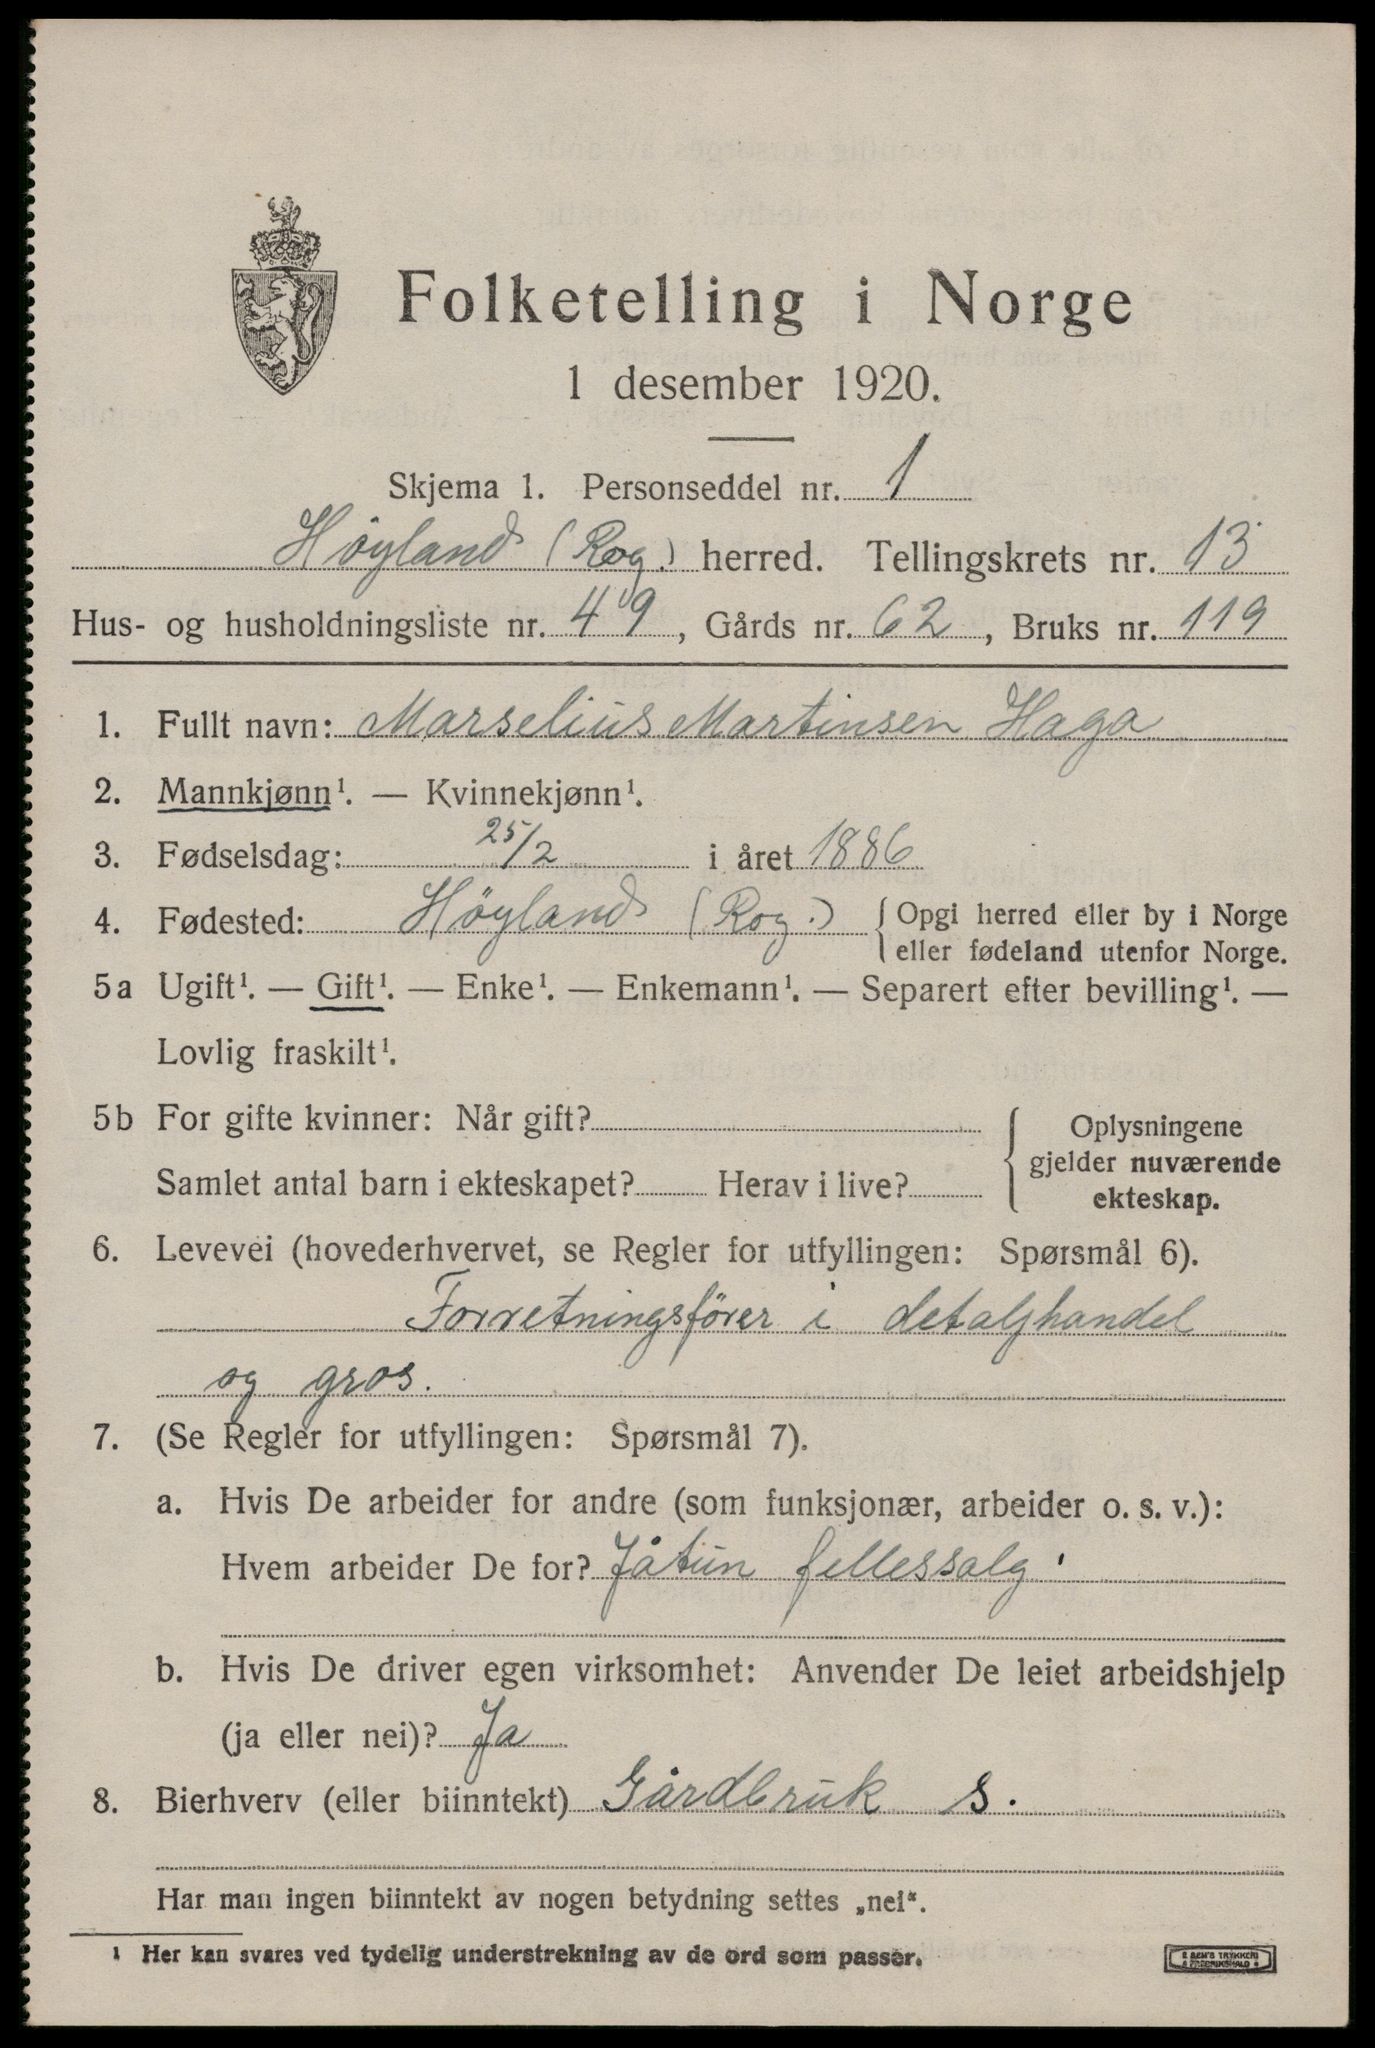 Folketelling i Norge
1 desember 1920.
Skjema 1. Personseddel nr. 1
Høyland (Rog.) herred. Tellingskrets nr. 13
Hus- og husholdningsliste nr. 49, Gårds nr. 62, Bruks nr. 119
1. Fullt navn: Marselius Martinsen Haga
2. Mannkjønn¹. — Kvinnekjønn¹.
3. Fødselsdag: 25/2 i året 1886
4. Fødested: Höyland (Rog.) { Opgi herred eller by i Norge
eller fødeland utenfor Norge.
5a Ugift¹. — Gift¹. — Enke¹. — Enkemann¹. — Separert efter bevilling¹. —
Lovlig fraskilt¹.
5b For gifte kvinner: Når gift?
Samlet antal barn i ekteskapet? Herav i live?
{ Oplysningene
gjelder nuværende
ekteskap.
6. Levevei (hovederhvervet, se Regler for utfyllingen: Spørsmål 6).
Forretningsförer i detaljhandel
og gros.
7. (Se Regler for utfyllingen: Spørsmål 7).
a. Hvis De arbeider for andre (som funksjonær, arbeider o. s. v.):
Hvem arbeider De for? Jåtun fellessalg
b. Hvis De driver egen virksomhet: Anvender De leiet arbeidshjelp
(ja eller nei)? Ja
8. Bierhverv (eller biinntekt) Gårdbruk S.
Har man ingen biinntekt av nogen betydning settes „nei“.
¹ Her kan svares ved tydelig understrekning av de ord som passer.